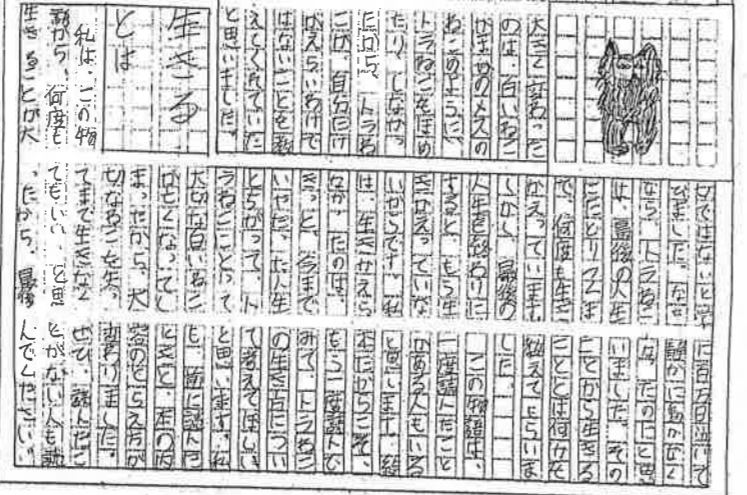 大きく変わった
のは、白いねこ
がほかのメスの
ねこのように、
トラねこをほめ
たり、しなかっ
たから、トラね
こが、自分だけ
がえらいわけで
はないことを教
えてくれていた
と思いました。
生きる
とは
私は、この物
語から、何度も
生きることが大
切ではないと学
びました。なぜ
なら、トラねこ
は、最後の人生
にたどりつくま
で、何度も生き
かえっています。
しかし、最後の
人生を終わりに
すると、もう生
きかえっていな
いからです。私
は、生きかえら
なかったのは、
きっと、今まで
いやだった人生
とちがって、ト
ラねこにとって
大切な白いねこ
が亡くなってし
まったから、大
切なねこを失っ
てまで生きなく
てもいい、と思
ったから、最後
に百万回泣いて
静かに動かなく
なったのだと思
いました。その
ことから生きる
こととは何かを
教えてもらいま
した。
この物語は、
一度読んだこと
がある人もいる
と思います。絵
本だからこそ、
もう一度読んで
みて、トラねこ
の生き方につい
て考えてほしい
と思います。私
も、前に読んだ
ときと、本の内
容のとらえ方が
変わりました。
ぜひ、読んだこ
とがない人も読
んでください。